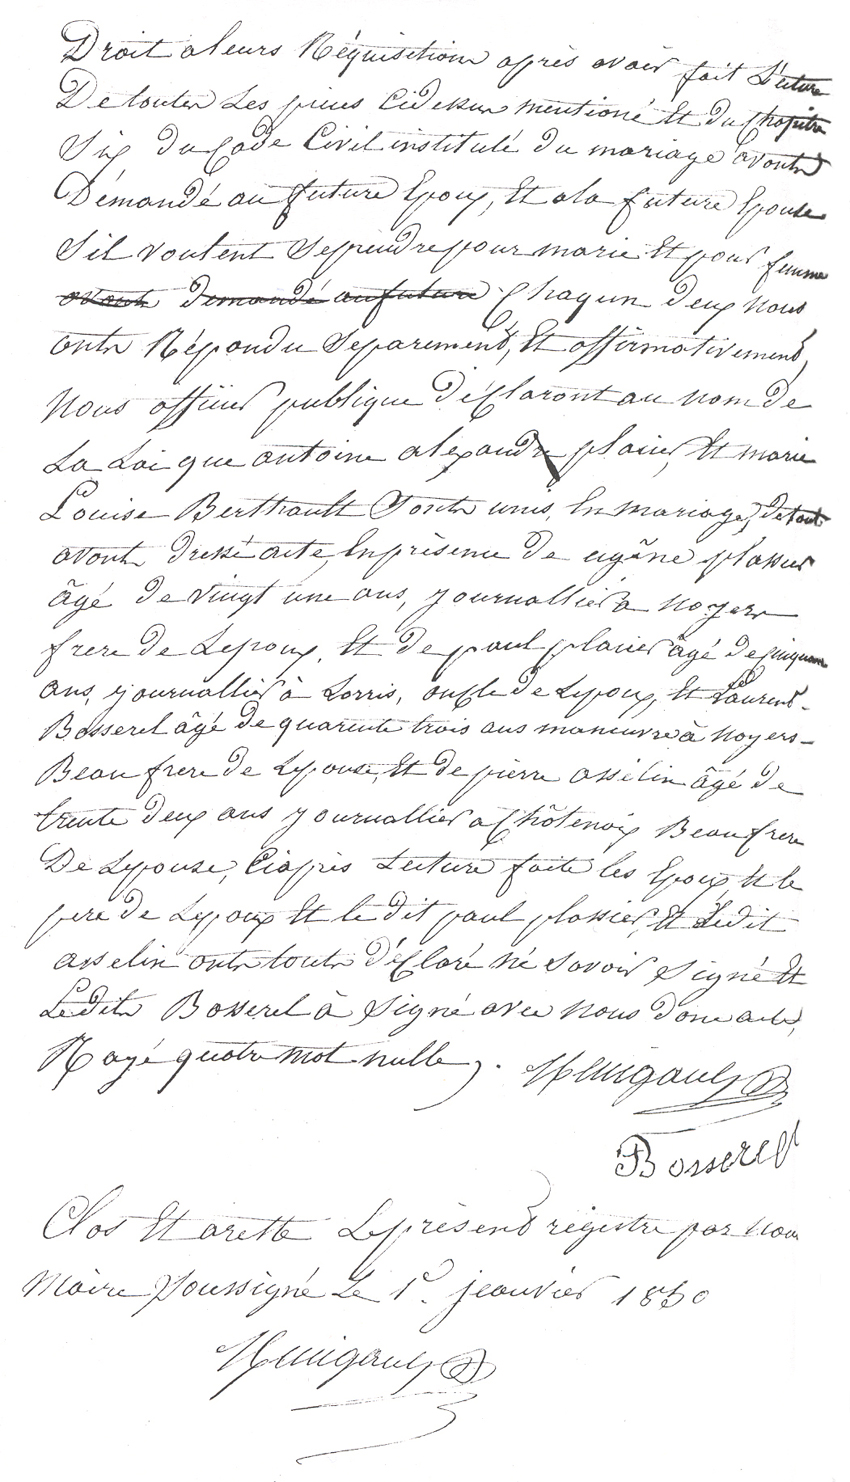 Droit a leurs Réquisitions après avoir fait Lecture
De toutes Les pièces Cidessus mentioné Et du Chapitre
Six du Code Civil institulé du mariage avonts
Démandé au future Epoux, Et a la future Epouse
Sil voulent Seprendre pour marie Et pour femme
avonts demandé au future Chaqun deux nous
onts Répondu Séparement, Et affirmativement,
Nous officier publique Déclaront au nom de
La Loi que antoine alexandre plasier, Et marie
Louise Berthault Sonts unis En mariage, de tout
avonts dressé acte, En présence de eugêne plasier
âgé de vingt une ans, journallier à noyers
frere de Lepoux, Et de paul plasier âgé de cinquante
ans, journallier à Lorris, oncle de Lepoux, Et Laurent
Bosserel âgé de quarente trois ans maneuvre à Noyers
Beau frere de Lepouse, Et de pierre asselin âgé de
trente deux ans journallier a Châtenoix Beau frere
De Lepouse, Ciaprès Lecture faite les Epoux Et le
pere de Lepoux Et le dit paul plasier, Et Ledit
asselin onts touts déClaré né Savoir Signé Et
Ledits Bosserel à Signé avec nous donc acte,
Rayé quatre mot nulle.
Bosserel
Clos Et aretté Le présent régistre par nous
Maire Soussigné Le 1er. jeanvier 1850